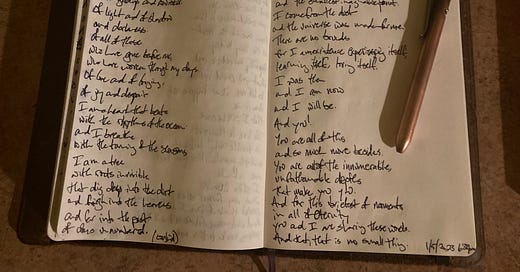 of light and of shadow
and darkness.
of all of those
who have gone before me,
who have woven through my days
Of love and of longing,
of joy and despair
I am a heart that beats
with the rhythms of the ocean
and I breathe
with the turning of the seasons
I am a tree
with roots invisible
that dig deep into the dirt
and reach into the heavens
and far into the past
of days unnumbered.
(cont'd)
I come from the dirt
and the universe was made for me.
There are no bounds
for I am existence experiencing itself
learning itself, loving itself.
I was then
and I am now
and I will be.
And you!
You are all of this
and so much more besides.
You are all of the innumerable,
unfathomable depths
that make you you.
And for this briefest of moments
in all of eternity
you and I are sharing these words.
And that, that is no small thing.